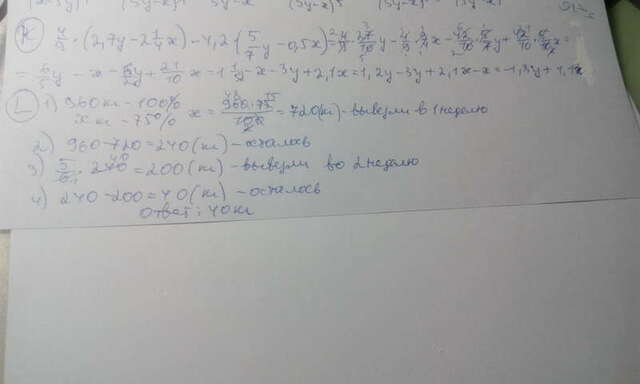 K) 4/9 · (2,7y - 2 1/4 x) - 4,2 · (5/7 y - 0,5x) =
= 6/5 y - x - 3y + 21/10 x = 1 1/5 y - x - 3y + 2,1x = 1,2y - 3y + 2,1x - x = -1,8y + 1,1x
L) 1) 960 кг - 100%
x кг - 75% x = 960·75/100 = 720 (кг) - вывезли в 1 неделю
2) 960 - 720 = 240 (кг) - осталось
3) 5/6 · 240 = 200 (кг) - вывезли во 2 неделю
4) 240 - 200 = 40 (кг) - осталось
Ответ: 40 кг